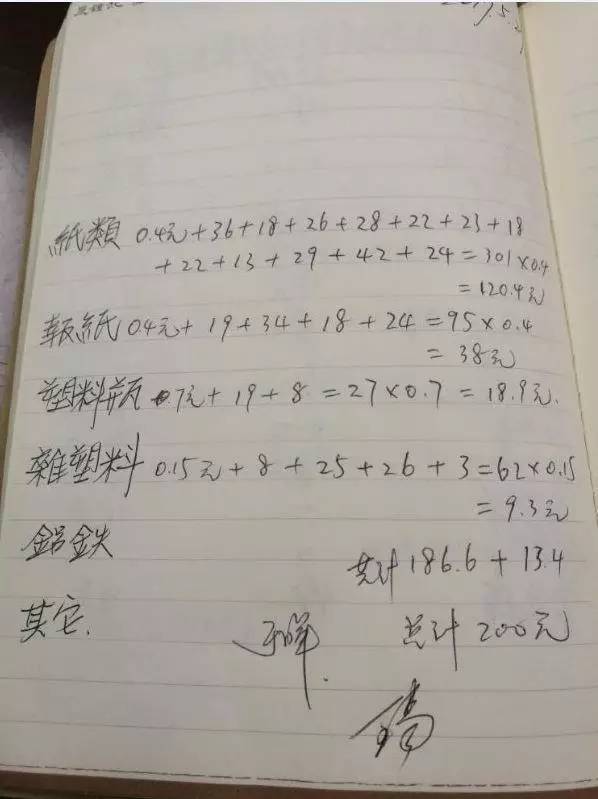 2017.5.
紙類 0.4元+36+18+26+28+22+23+18
+22+13+29+42+24=301×0.4
=120.4元
報紙 0.4元+19+34+18+24=95×0.4
=38元
塑料瓶 0.7元+19+8=27×0.7=18.9元.
雜塑料 0.15元+8+25+26+3=62×0.15
=9.3元
鋁鉄
共计 186.6+13.4
其它.
总计 200元